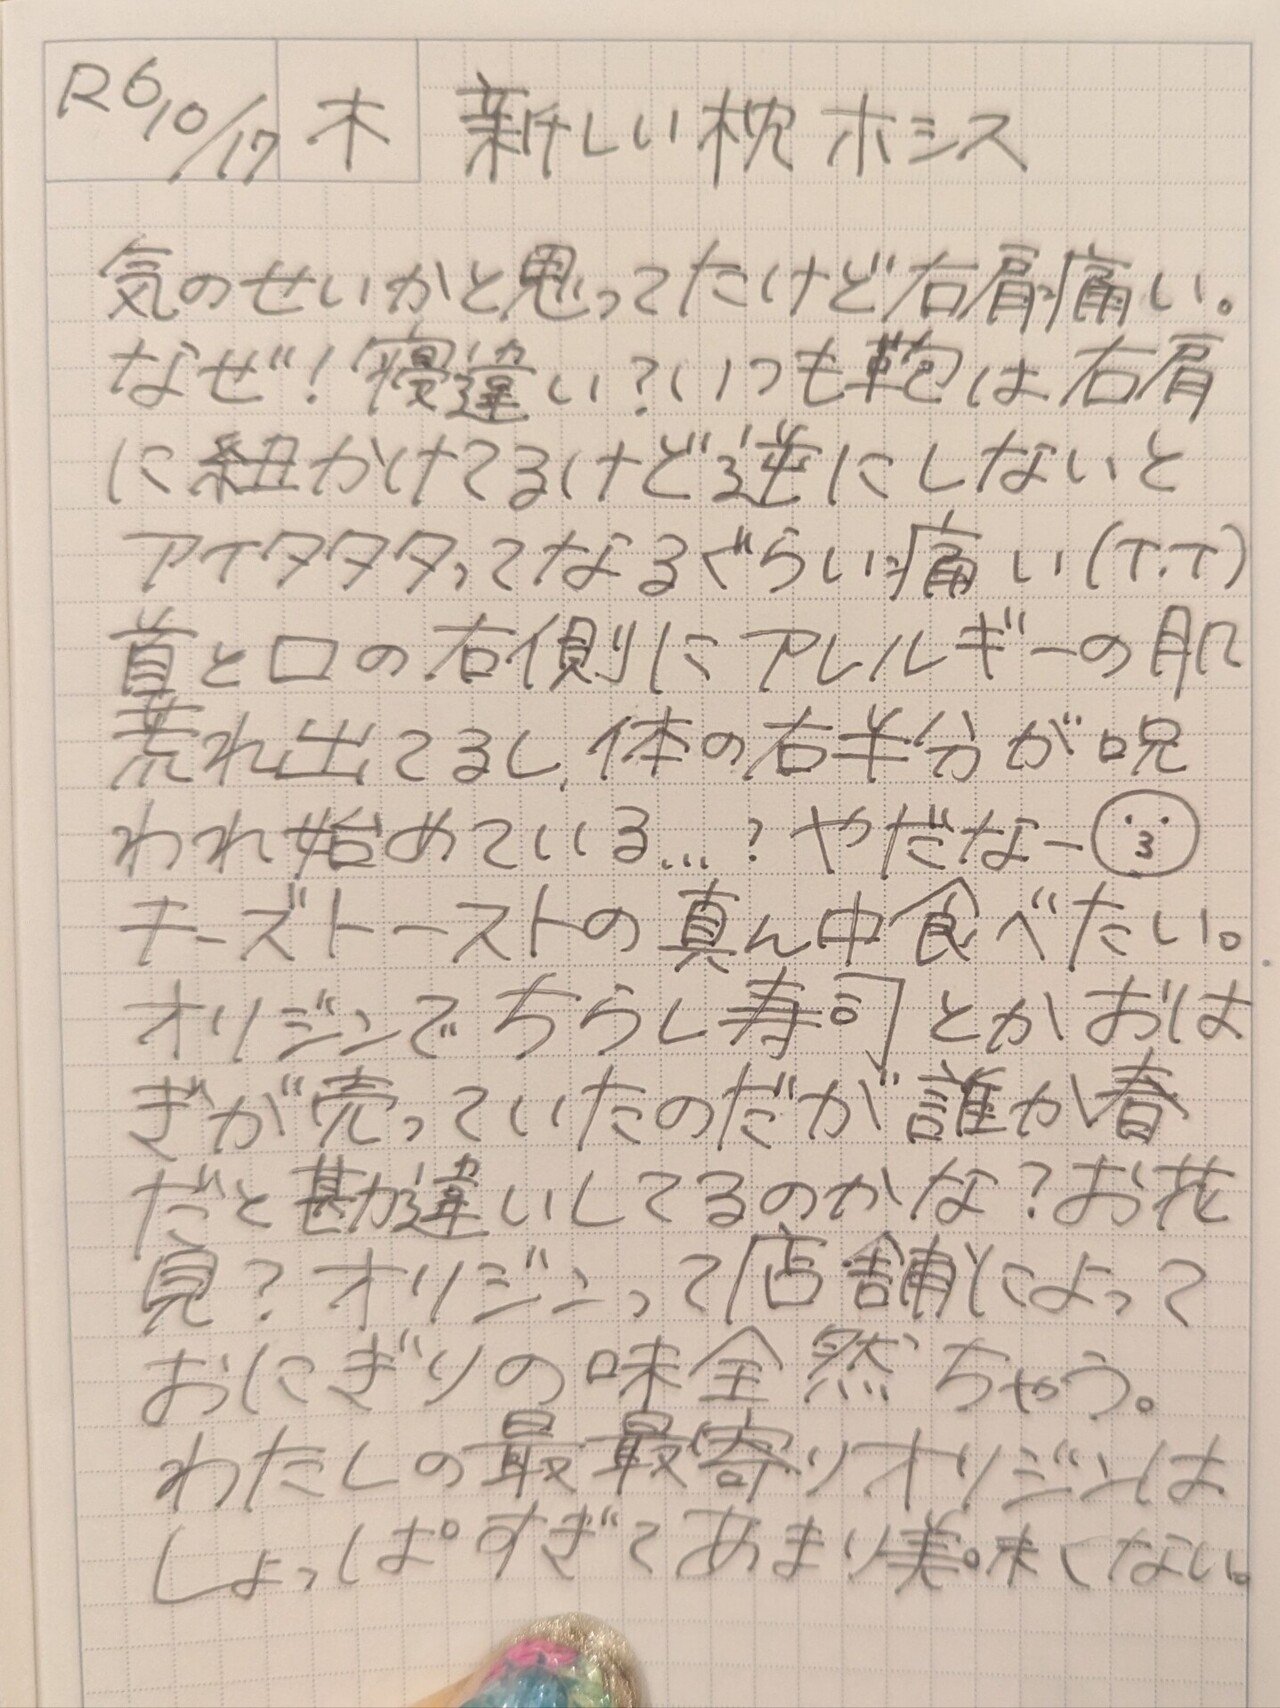 R6 10/17 木 新しい枕ホシス
気のせいかと思ってたけど右肩痛い。
なぜ！寝違い？いつも鞄は右肩
に紐かけてるけど逆にしないと
アイタタタってなるぐらい痛い(T.T)
首と口の右側にアレルギーの肌
荒れ出てるし、体の右半分が呪
われ始めている…？やだなー
チーズトーストの真ん中食べたい。
オリジンでちらし寿司とかおは
ぎが売っていたのだが誰か春
だと勘違いしてるのかな？お花
見？オリジンって店舗によって
おにぎりの味全然ちゃう。
わたしの最最寄りオリジンは
しょっぱすぎてあまり美味くない。